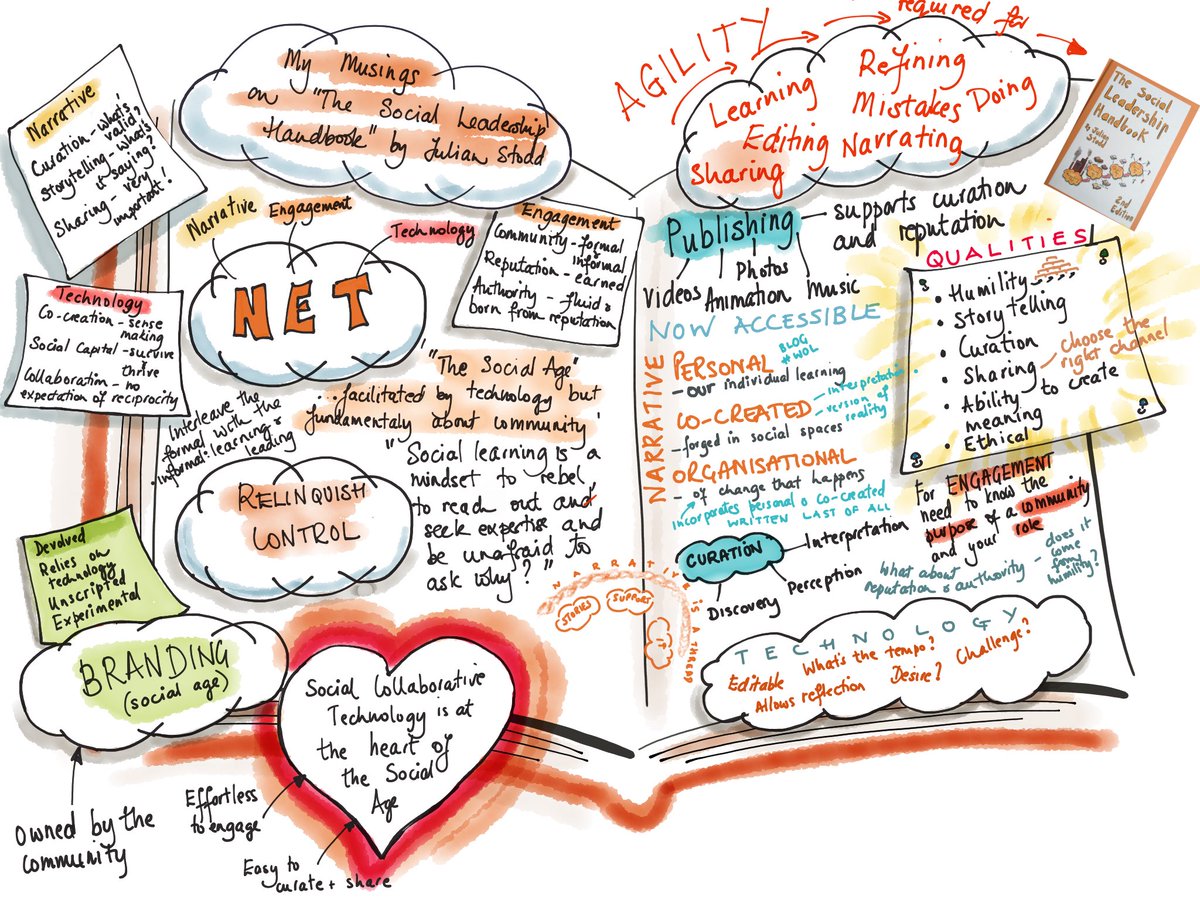 My Musings
on "The Social Leadership
Handbook" by Julian Stodd
Narrative
Curation - what's
valid?
Storytelling - what
is saying?
Sharing - very
important!
Narrative
Engagement
Technology
NET
Engagement
Community - formal
informal
Reputation - earned
Authority - fluid &
born from reputation
Technology
Co-creation - sense
making
Social Capital - survive
& thrive
Collaboration - no
expectation of reciprocity
"The Social Age"
...facilitated by technology but
fundamentaly about community'
Interleave the
formal with the
informal: learning &
leading
RELINQUISH
CONTROL
"Social learning is a
mindset to rebel
to reach out and
seek expertise and
be unafraid to
ask why?"
Devolved
Relies on
technology
Unscripted
Experimental
BRANDING
(social age)
owned by the
community
Social Collaborative
Technology is at
the heart of
the Social
Age
Effortless
to engage
Easy to
curate + share
AGILITY
required for
Learning
Refining
Mistakes
Doing
Editing
Narrating
Sharing
The Social
Leadership
Handbook
by Julian
Stodd
2nd
Edition
Publishing
supports curation
and reputation
Videos
Photos
Animation
Music
NOW ACCESSIBLE
NARRATIVE
PERSONAL
BLOG
#WOL
- our individual learning
CO-CREATED
- interpretation
- version of
reality
- forged in social spaces
ORGANISATIONAL
- of change that happens
incorporates personal & co-created
WRITTEN LAST OF ALL
QUALITIES
• Humility
• Storytelling
• Curation
• Sharing - choose the
right channel
• Ability to create
meaning
• Ethical
For ENGAGEMENT
need to know the
purpose of a community
and your role
CURATION
Interpretation
Perception
Discovery
What about
reputation & authority - does it
come
from
humility?
NARRATIVE is A THREAD
STORIES
SUPPORT
IT
TECHNOLOGY
Editable
What's the tempo?
Challenge?
Allows reflection
Desire?